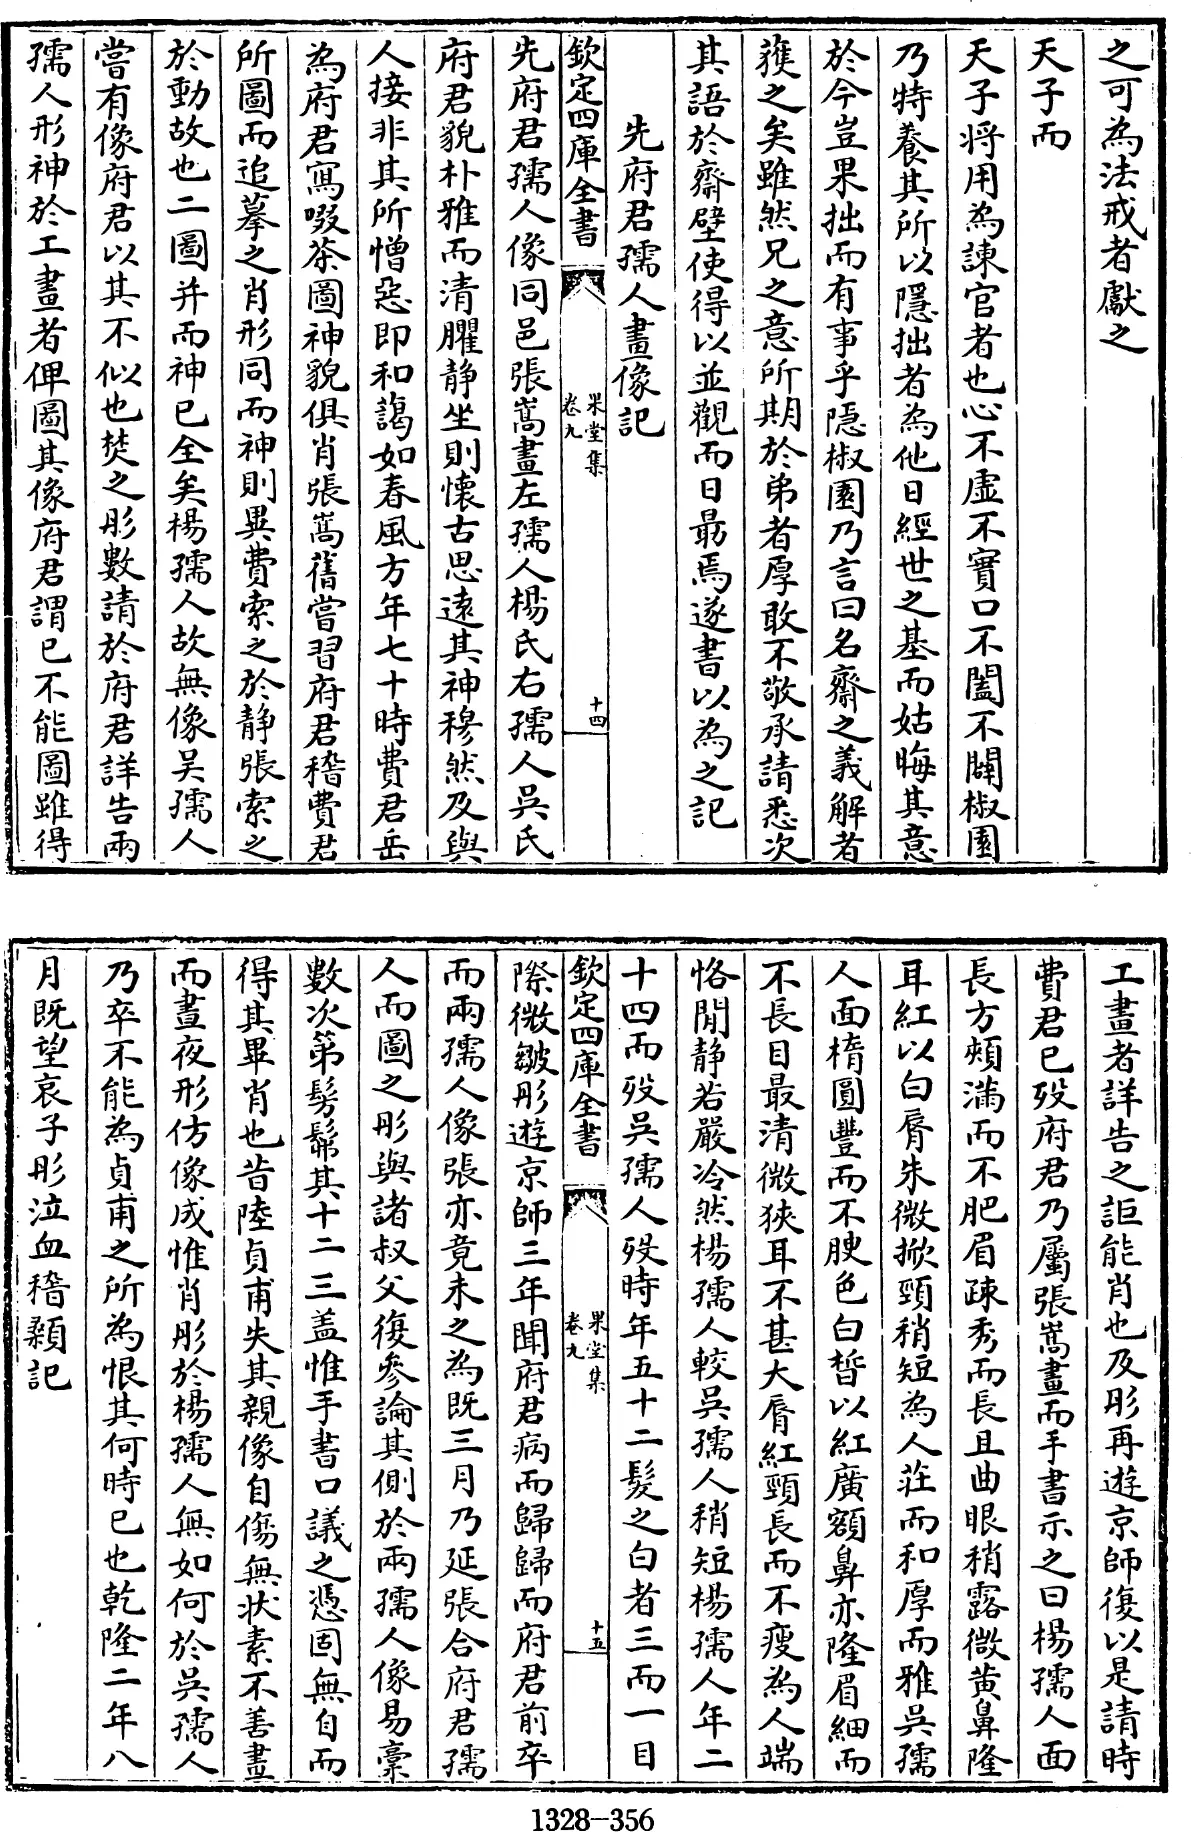 之可為法戒者獻之
天子而
天子將用為諫官者也心不虛不實口不闔不闢椒園
乃特養其所以隱拙者為他日經世之基而姑晦其意
於今豈果拙而有事乎隱椒園乃言曰名齋之義解者
蓷之矣雖然兄之意所期於弟者厚敢不敬承請悉次
其語於齋壁使得以並觀而日勗焉遂書以為之記
先府君孺人畫像記
欽定四庫全書
果堂集
卷九
十四
先府君孺人像同邑張嵩畫左孺人楊氏右孺人吳氏
府君貌朴雅而清臞静坐則懷古思遠其神穆然及與
人接非其所憎惡即和藹如春風方年七十時費君岳
為府君寫啜茶圖神貌俱肖張嵩舊嘗習府君稽費君
所圖而追摹之肖形同而神則異費索之於静張索之
於動故也二圖并而神已全矣楊孺人故無像吴孺人
嘗有像府君以其不似也焚之彤數請於府君詳告兩
孺人形神於工畫者俾圖其像府君謂已不能圖雖得
工畫者詳告之詎能肖也及彤再遊京師復以是請時
費君已歿府君乃屬張嵩畫而手書示之曰楊孺人面
長方頰滿而不肥眉疎秀而長且曲眼稍露微黄鼻隆
耳紅以白脣朱微掀頸稍短為人莊而和厚而雅吳孺
人面橢圓豐而不腴色白皙以紅廣額鼻亦隆眉細而
不長目最清微狹耳不甚大脣紅頸長而不瘦為人端
恪閒静若嚴冷然楊孺人較吳孺人稍短楊孺人年二
十四而歿吳孺人歿時年五十二髮之白者三而一目
欽定四庫全書
果堂集
卷九
十五
際微皺彤遊京師三年聞府君病而歸歸而府君前卒
而兩孺人像張亦竟未之為既三月乃延張合府君孺
人而圖之彤與諸叔父復參論其側於兩孺人像易稾
數次第髣髴其十二三盖惟手書口議之憑固無自而
得其畢肖也昔陸貞甫失其親像自傷無狀素不善畫
而晝夜形仿像成惟肖彤於楊孺人無如何於吳孺人
乃卒不能為貞甫之所為恨其何時已也乾隆二年八
月既望哀子彤泣血稽顙記
1328-356